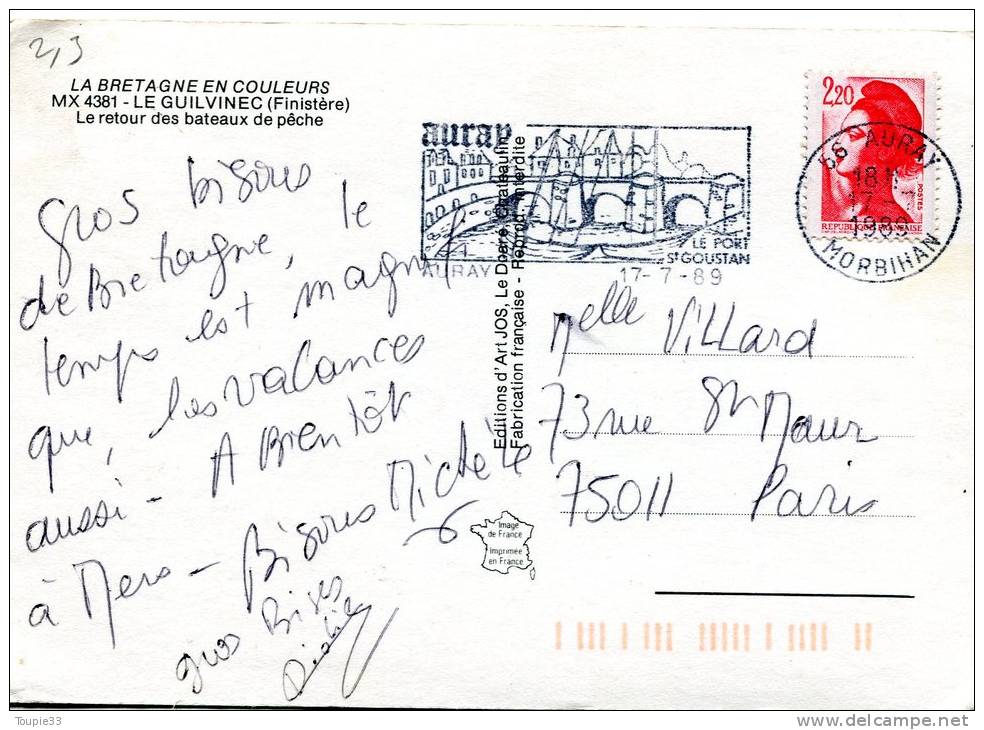 2,3
LA BRETAGNE EN COULEURS
MX 4381 - LE GUILVINEC (Finistère)
Le retour des bateaux de pêche
gros bisous
de Bretagne, le
temps est magnif
que, les vacances
aussi - A Bientôt
à Mers - Bisous Michèle
gros Bises
Editions d'Art JOS, Le Doaré Chateaulin
Fabrication française - Reprod. interdite
auray
LE PORT
St GOUSTAN
AURAY
17-7-89
2,20
POSTES
REPUBLIQUE FRANÇAISE
56 AURAY
18H
17-7
1989
MORBIHAN
Melle Villard
73 rue St Maur
75011 Paris
Image
de France
Imprimée
en France
Toupie33
www.delcampe.net